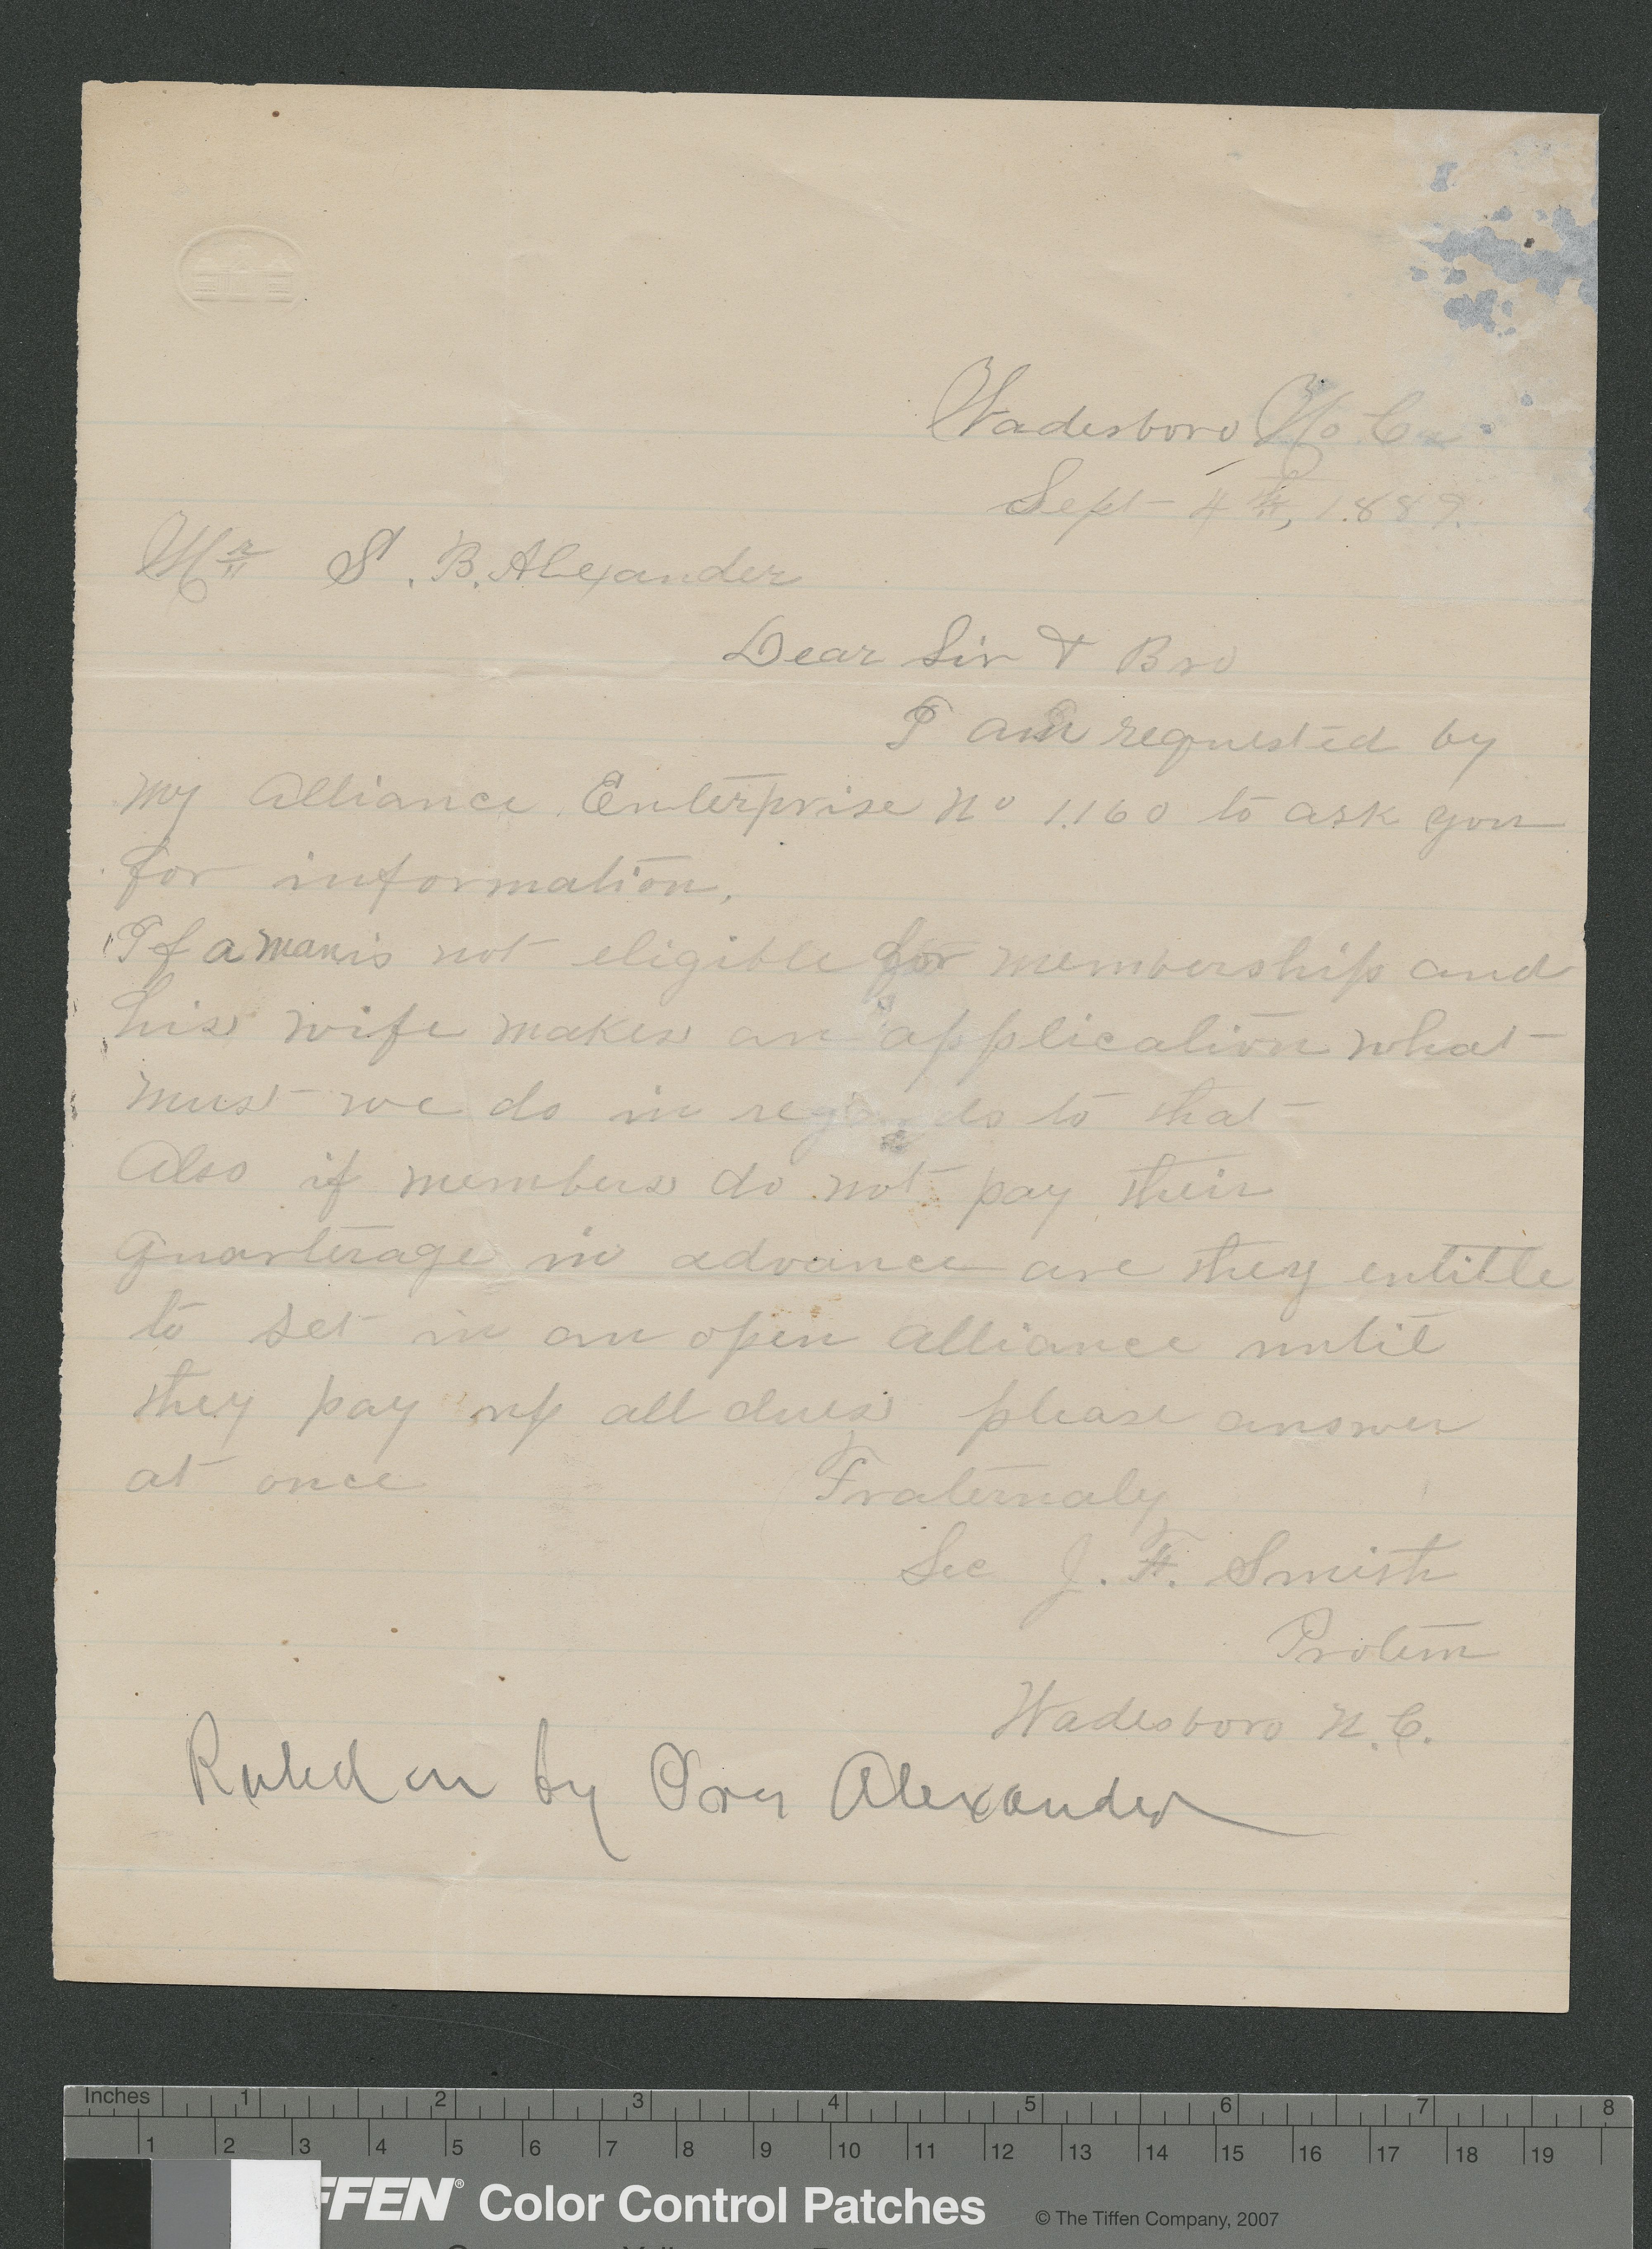 Wadesboro No. C.
Sept 4th, 1889.
Mr S. B. Alexander
Dear Sir & Bro
I am requested by
my Alliance Enterprise No 1.160 to ask you
for information.
If a man is not eligible for membership and
his wife makes an application what
must we do in regards to that
Also if members do not pay their
quarterage in advance are they entitle
to set in an open Alliance until
they pay up all dues please answer
at once Fraternaly
Sec J. F. Smith
Protem
Wadesboro N.C.
Ruled on by Pres Alexander
Inches 1 2 3 4 5 6 7 8
1 2 3 4 5 6 7 8 9 10 11 12 13 14 15 16 17 18 19
FFEN® Color Control Patches © The Tiffen Company, 2007